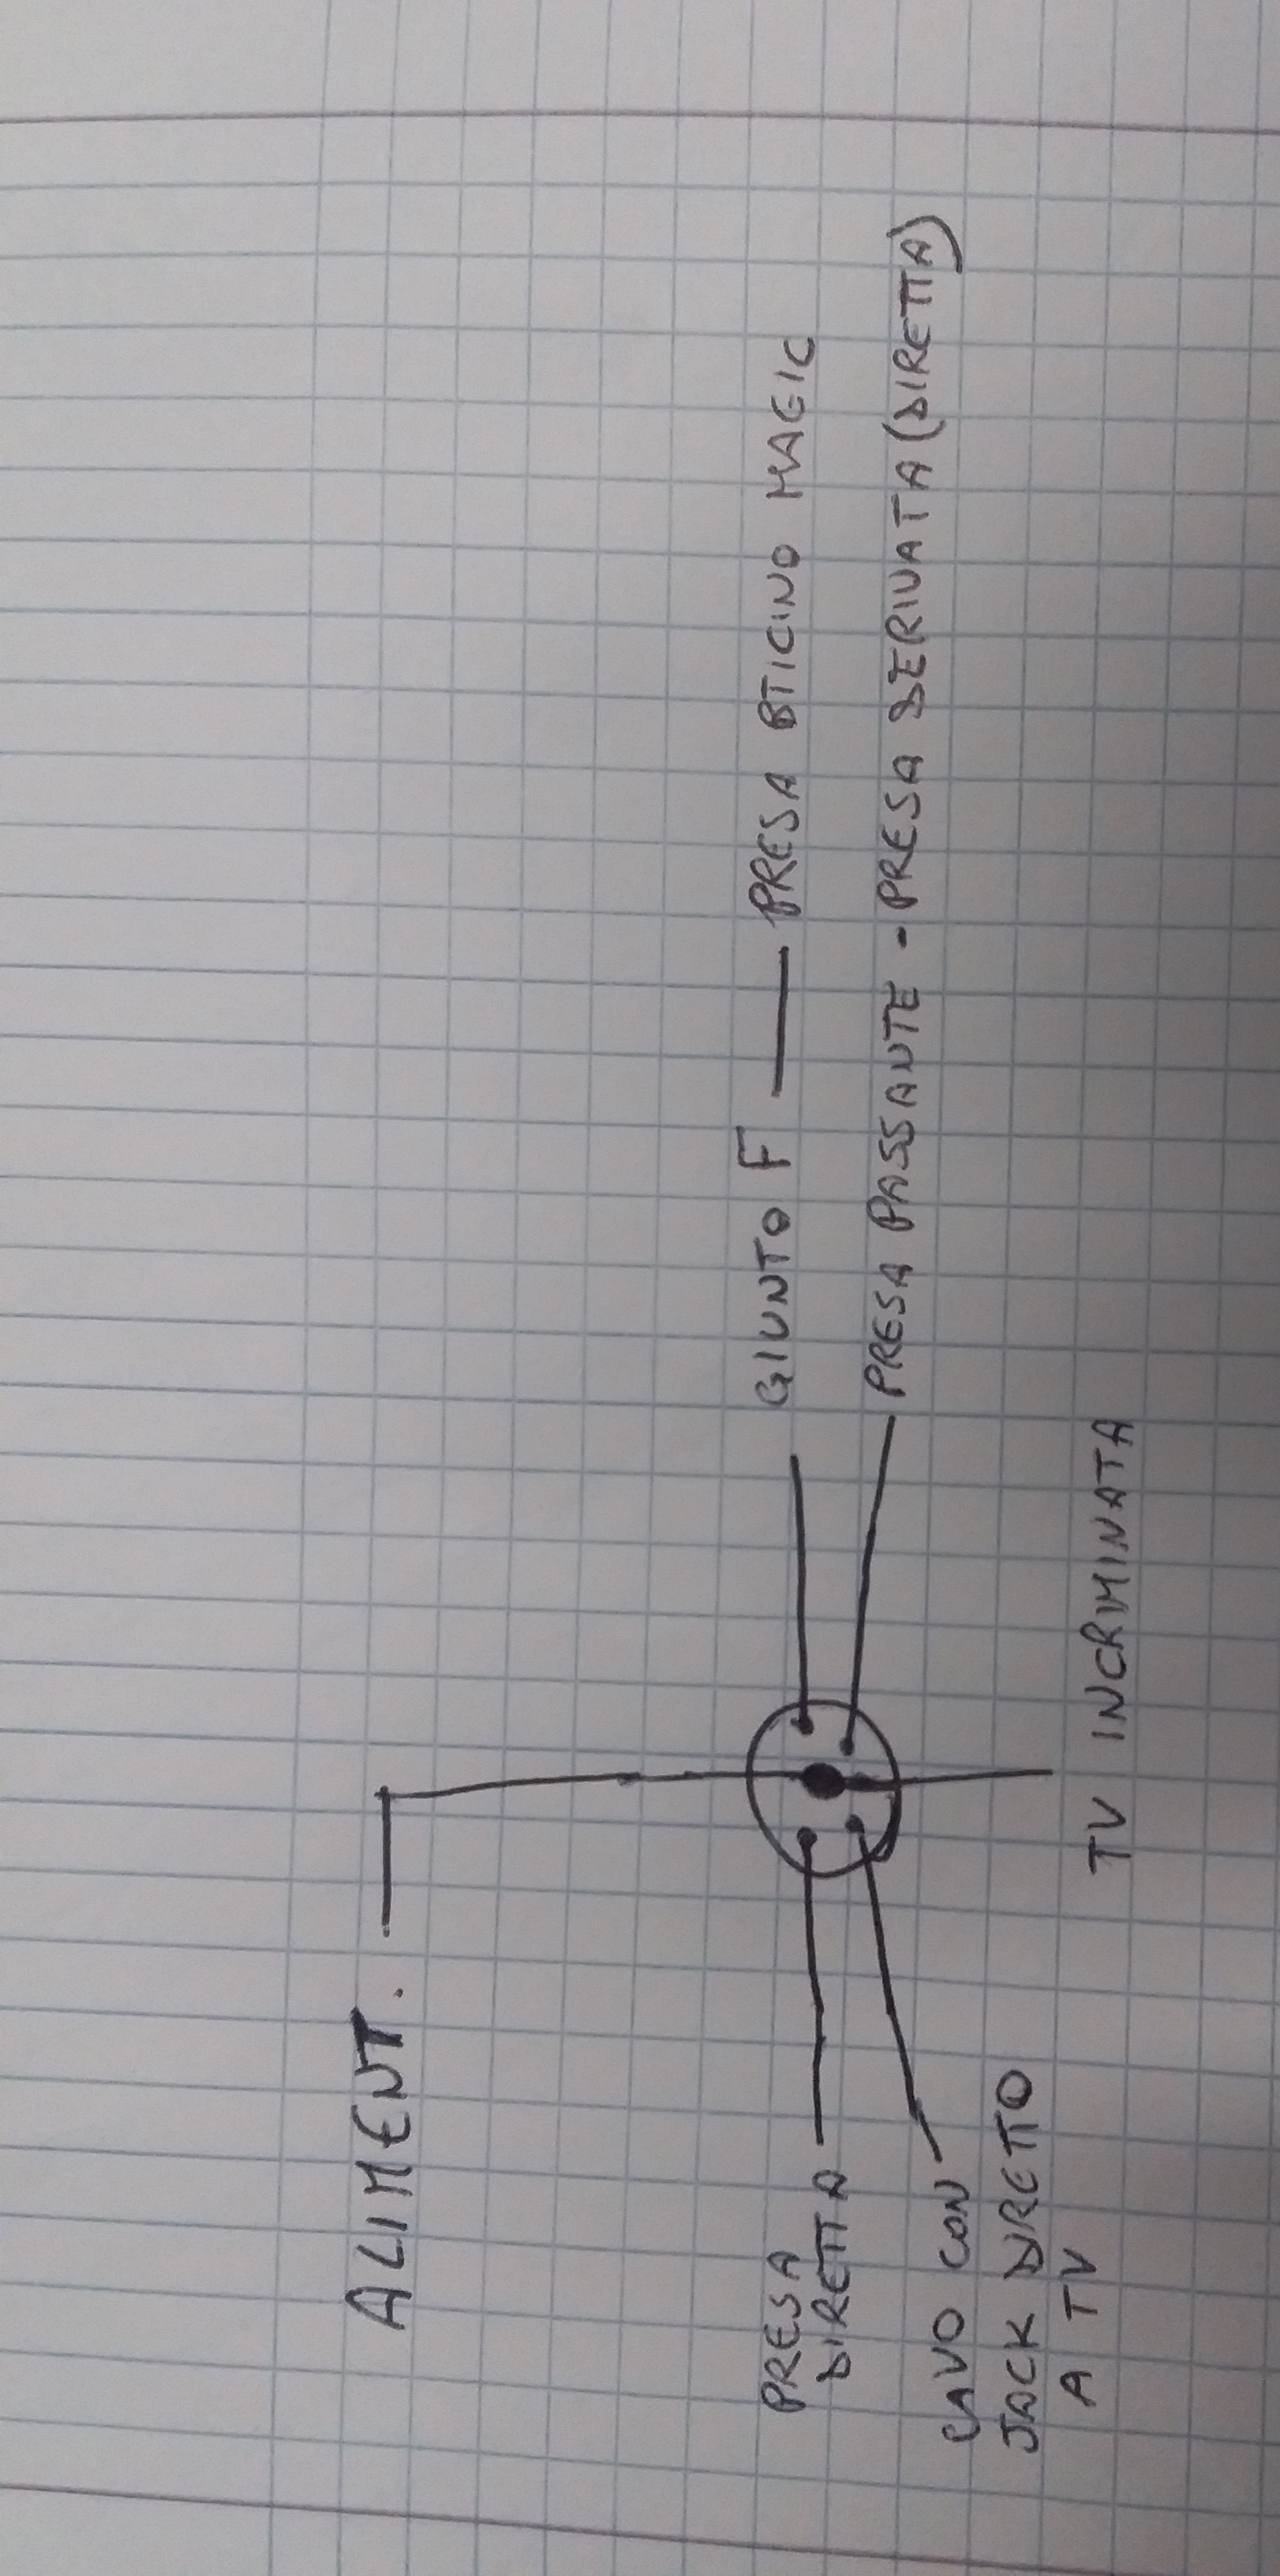 ALIMENT.
GIUNTO F — PRESA BTICINO MAGIC
PRESA PASSANTE - PRESA DERIVATA (DIRETTA)
PRESA
DIRETTA
CAVO CON
JACK DIRETTO
A TV
TV INCRIMINATA